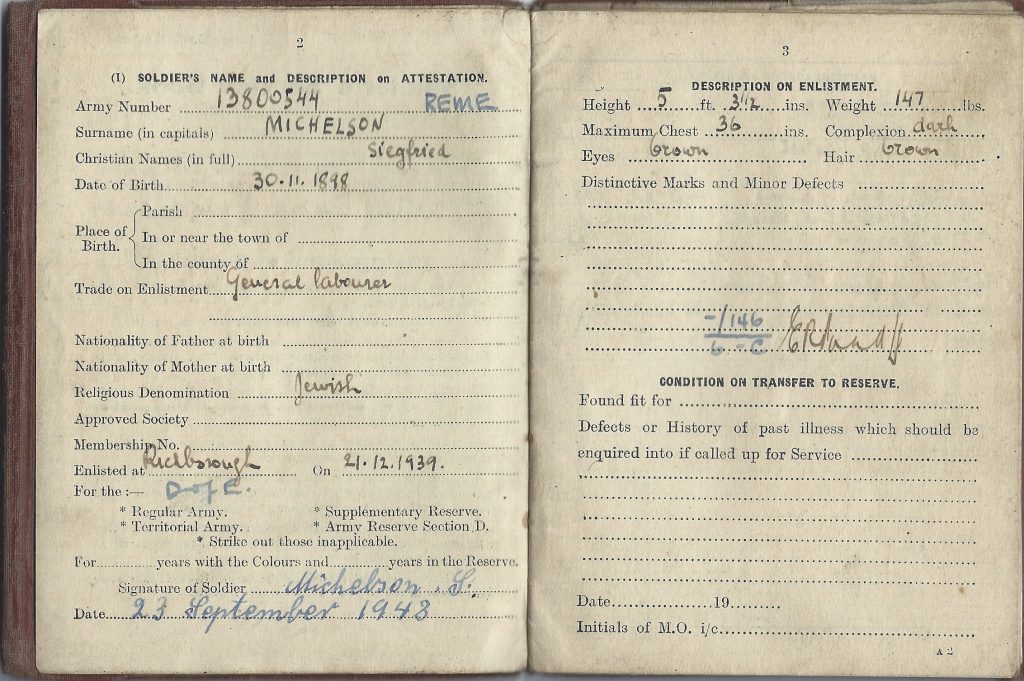 2
(I) SOLDIER'S NAME and DESCRIPTION on ATTESTATION.
Army Number 13800544 REME
Surname (in capitals) MICHELSON
Christian Names (in full) Siegfried
Date of Birth 30.11.1898
Place of Birth.
Parish
In or near the town of
In the county of
Trade on Enlistment General labourer
Nationality of Father at birth
Nationality of Mother at birth
Religious Denomination Jewish
Approved Society
Membership No.
Enlisted at On 21.12.1939.
For the :— D of E.
* Regular Army. * Supplementary Reserve.
* Territorial Army. * Army Reserve Section D.
* Strike out those inapplicable.
For years with the Colours and years in the Reserve.
Signature of Soldier Michelson. S.
Date 23 September 1943
3
DESCRIPTION ON ENLISTMENT.
Height 5 ft. 3 1/2 ins. Weight 147 lbs.
Maximum Chest 36 ins. Complexion dark
Eyes brown Hair brown
Distinctive Marks and Minor Defects
-/146
6 - C
CONDITION ON TRANSFER TO RESERVE.
Found fit for
Defects or History of past illness which should be
enquired into if called up for Service
Date 19
Initials of M.O. i/c
A 2